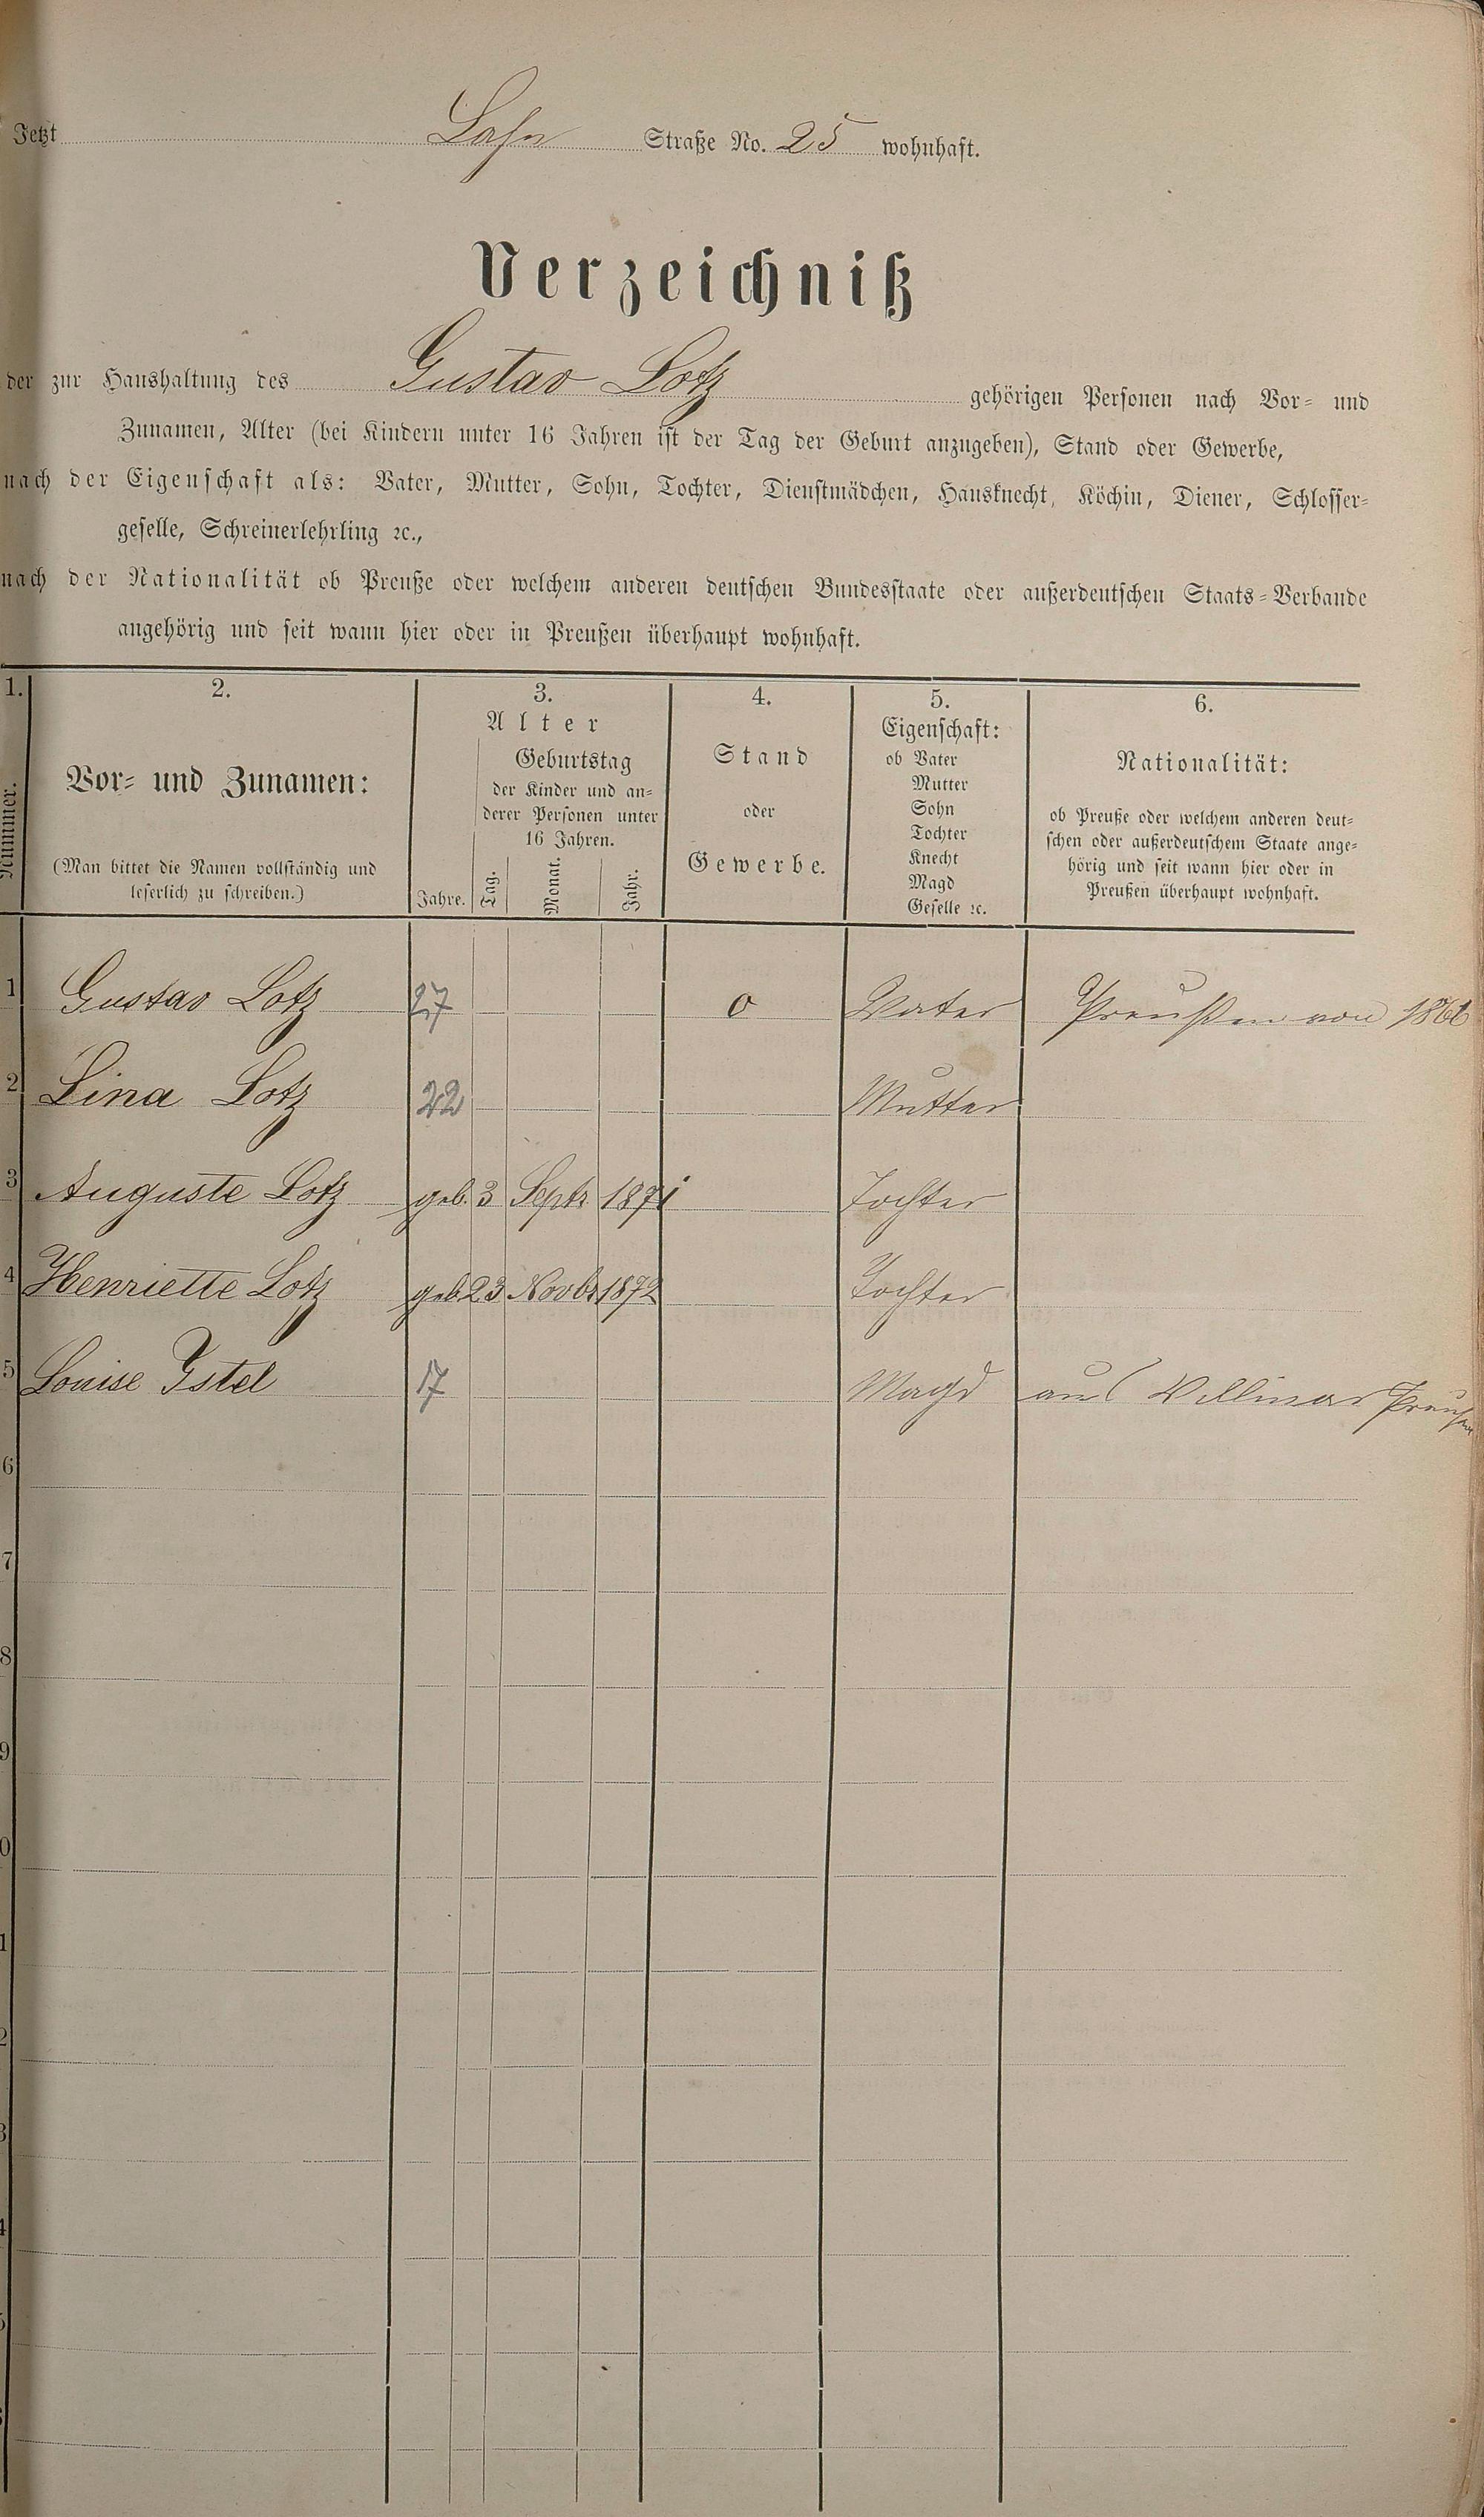 Jetzt Lahn Straße No. 25 wohnhaft.
Verzeichniß
der zur Haushaltung des Gustav Lotz gehörigen Personen nach Vor- und
Zunamen, Alter (bei Kindern unter 16 Jahren ist der Tag der Geburt anzugeben), Stand oder Gewerbe,
nach der Eigenschaft als: Vater, Mutter, Sohn, Tochter, Dienstmädchen, Hausknecht, Köchin, Diener, Schlosser-
geselle, Schreinerlehrling ꝛc.,
nach der Nationalität ob Preuße oder welchem anderen deutschen Bundesstaate oder außerdeutschen Staats-Verbande
angehörig und seit wann hier oder in Preußen überhaupt wohnhaft.
1.
Nummer.
2.
Vor- und Zunamen:
(Man bittet die Namen vollständig und
leserlich zu schreiben.)
3.
Alter
Jahre.
Geburtstag
der Kinder und an-
derer Personen unter
16 Jahren.
Tag.
Monat.
Jahr.
4.
Stand
oder
Gewerbe.
5.
Eigenschaft:
ob Vater
Mutter
Sohn
Tochter
Knecht
Magd
Geselle ꝛc.
6.
Nationalität:
ob Preuße oder welchem anderen deut-
schen oder außerdeutschem Staate ange-
hörig und seit wann hier oder in
Preußen überhaupt wohnhaft.
1 Gustav Lotz 27 o Vater Preußen von 1866
2 Lina Lotz 22 Mutter
3 Auguste Lotz geb. 3 Septr 1871 Tochter
4 Henriette Lotz geb 23 Novbr 1872 Tochter
5 Louise Istel 17 Magd aus Villmar Preußen
6
7
8
9
0
1
2
3
4
5